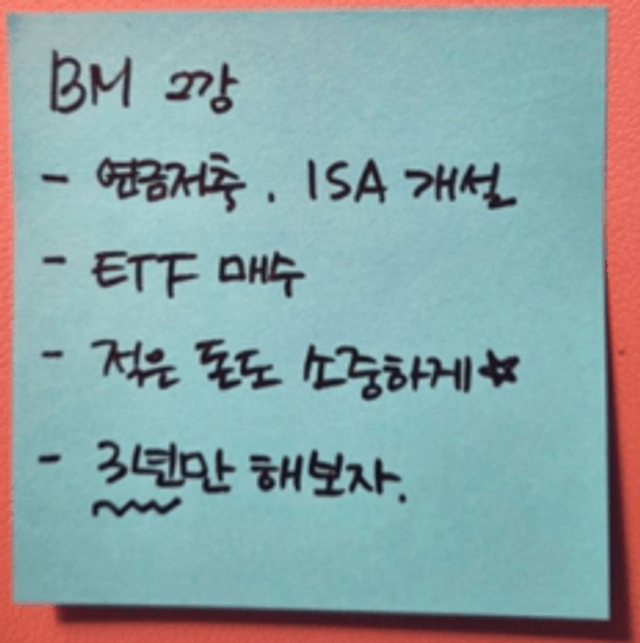 BM 2강
- 연금저축. ISA 개설
- ETF 매수
- 적은 돈도 소중하게☆
- 3년만 해보자.